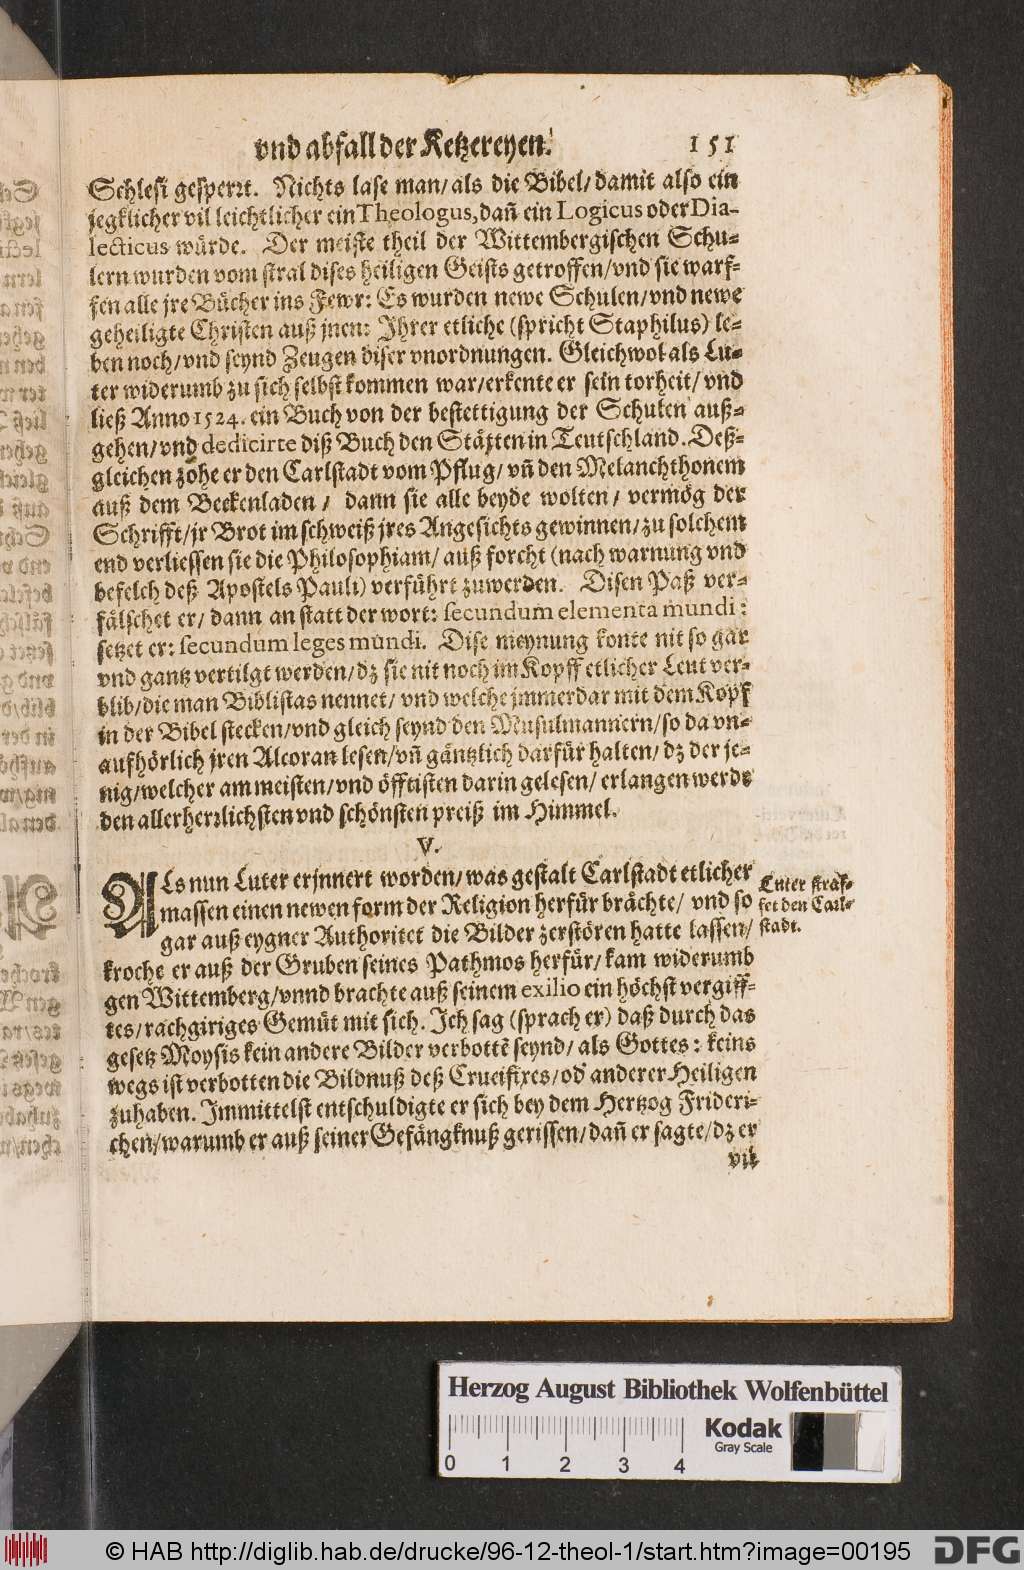 vnd abfall der Ketzereyen. 151
Schlest gesperrt. Nichts lase man/ als die Bibel/ damit also ein
jegklicher vil leichtlicher ein Theologus, dañ ein Logicus oder Dia-
lecticus würde. Der meiste theil der Wittembergischen Schu-
lern wurden vom stral dises heiligen Geists getroffen/ vnd sie warf-
fen alle jre Bücher ins Fewr: Es wurden newe Schulen/ vnd newe
geheiligte Christen auß jnen: Ihrer etliche (spricht Staphilus) le-
ben noch/ vnd seynd Zeugen diser vnordnungen. Gleichwol als Lu-
ter widerumb zu sich selbst kommen war/ erkente er sein torheit/ vnd
ließ Anno 1524. ein Buch von der bestettigung der Schulen auß-
gehen/ vnd dedicirte diß Buch den Stätten in Teutschland. Deß-
gleichen zohe er den Carlstadt vom Pflug/ vñ den Melanchthonem
auß dem Beckenladen/ dann sie alle beyde wolten/ vermög der
Schrifft/ jr Brot im schweiß jres Angesichts gewinnen/ zu solchem
end verliessen sie die Philosophiam/ auß forcht (nach warnung vnd
befelch deß Apostels Pauli) verführt zuwerden. Disen Paß ver-
fälschet er/ dann an statt der wort: secundum elementa mundi:
setzet er: secundum leges mundi. Dise meynung konte nit so gar
vnd gantz vertilgt werden/ dz sie nit noch im Kopff etlicher Leut ver-
blib/ die man Biblistas nennet/ vnd welche jmmerdar mit dem Kopf
in der Bibel stecken/ vnd gleich seynd den Musulmannern/ so da vn-
aufhörlich jren Alcoran lesen/ vñ gäntzlich darfür halten/ dz der je-
nig/ welcher am meisten/ vnd öfftisten darin gelesen/ erlangen werde
den allerherrlichsten vnd schönsten preiß im Himmel.
V.
ALs nun Luter erjnnert worden/ was gestalt Carlstadt etlicher
massen einen newen form der Religion herfür brächte/ vnd so
gar auß eygner Authoritet die Bilder zerstören hatte lassen/
Luter straf-
fet den Carl-
stadt.
kroche er auß der Gruben seines Pathmos herfür/ kam widerumb
gen Wittemberg/ vnnd brachte auß seinem exilio ein höchst vergiff-
tes/ rachgiriges Gemüt mit sich. Ich sag (sprach er) daß durch das
gesetz Moysis kein andere Bilder verbottē seynd/ als Gottes: keins
wegs ist verbotten die Bildnuß deß Crucifixes/ od' anderer Heiligen
zuhaben. Immittelst entschuldigte er sich bey dem Hertzog Frideri-
chen/ warumb er auß seiner Gefängknuß gerissen/ dañ er sagte/ dz er
vil
Herzog August Bibliothek Wolfenbüttel
0 1 2 3 4
Kodak
Gray Scale
© HAB http://diglib.hab.de/drucke/96-12-theol-1/start.htm?image=00195
DFG